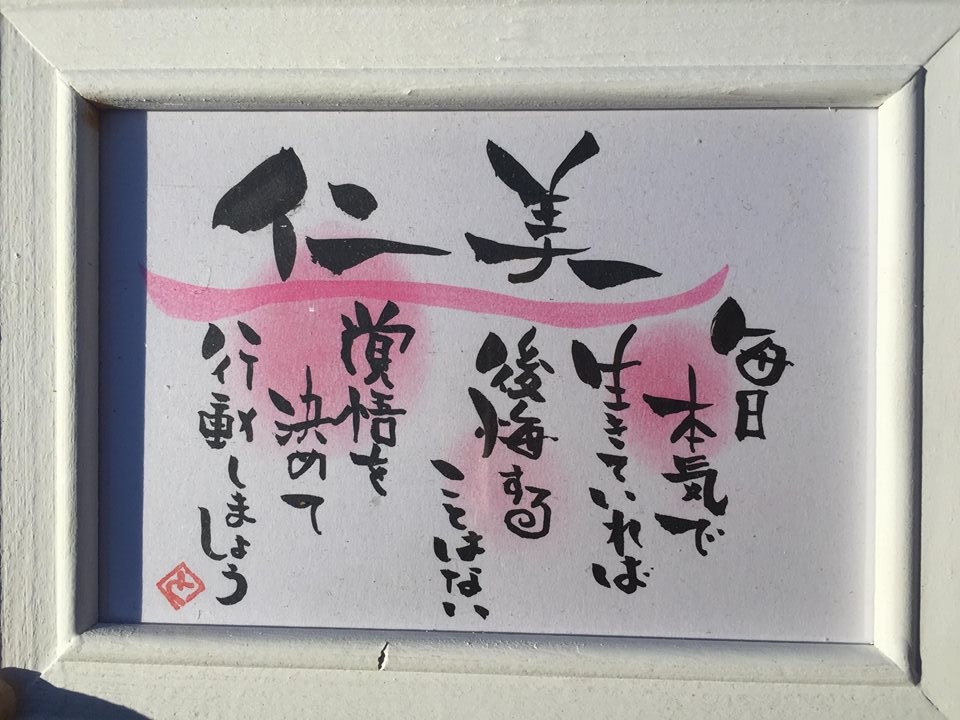 美仁
毎日
本気で
生きていれば
後悔する
ことはない
覚悟を
決めて
行動しましょう